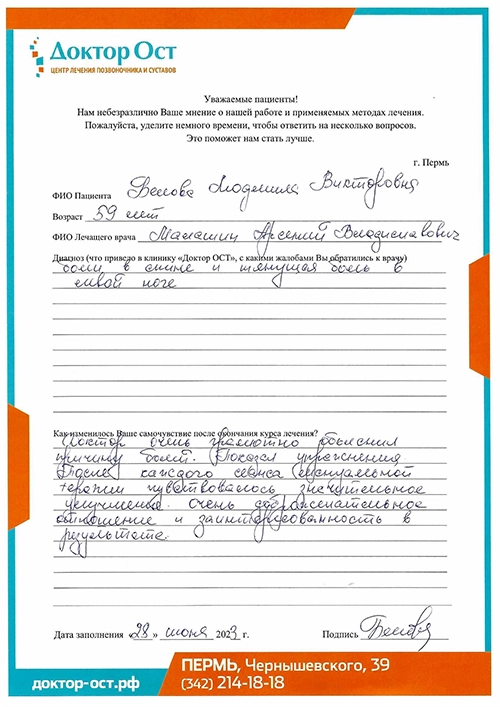 Доктор Ост
ЦЕНТР ЛЕЧЕНИЯ ПОЗВОНОЧНИКА И СУСТАВОВ
Уважаемые пациенты!
Нам небезразлично Ваше мнение о нашей работе и применяемых методах лечения.
Пожалуйста, уделите немного времени, чтобы ответить на несколько вопросов.
Это поможет нам стать лучше.
г. Пермь
ФИО Пациента Белова Людмила Викторовна
Возраст 59 лет
ФИО Лечащего врача Малашин Арсений Владиславович
Диагноз (что привело в клинику «Доктор ОСТ», с какими жалобами Вы обратились к врачу)
боли в спине и тянущая боль в
левой ноге
Как изменилось Ваше самочувствие после окончания курса лечения?
Доктор очень грамотно объяснил
причину болей. Показал упражнения
После каждого сеанса мануальной
терапии чувствовалось значительное
улучшение. очень доброжелательное
отношение и заинтересованность в
результате.
Дата заполнения «28» июня 2023 г. Подпись Белова
ПЕРМЬ, Чернышевского, 39
доктор-ост.рф
(342) 214-18-18